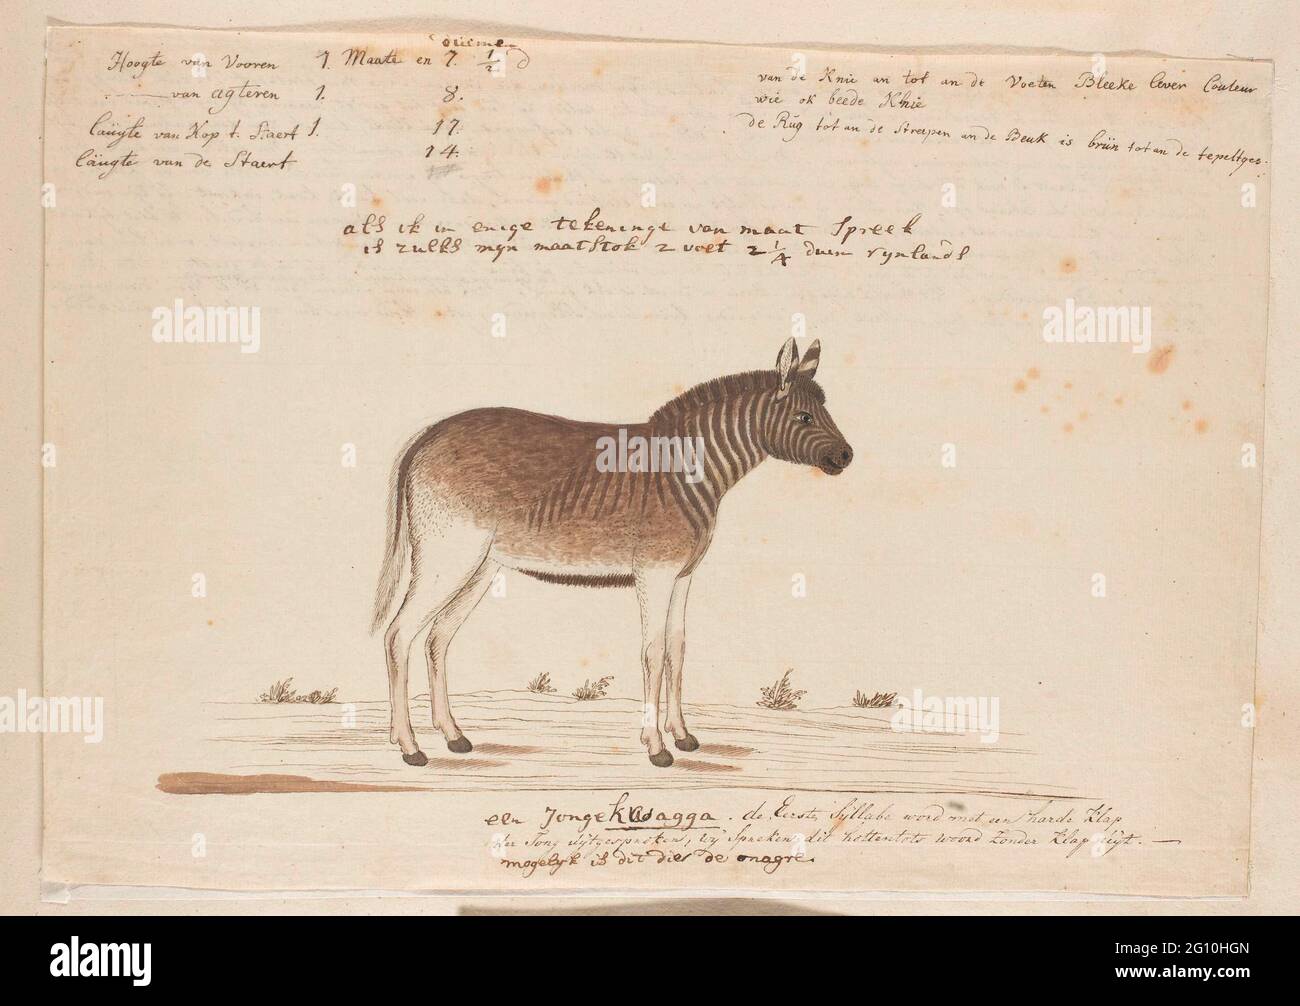 duimen
Hoogte van Vooren 1. Maate en 7. 1/2 d
van agteren 1. 8.
läŋgte van Kop t. Staert 1. 17.
läŋgte van de Staert 14.
van de Knie an tot an de Voeten Bleeke lever Couleur
wie ok beede Knie
de Rüg tot an de Streepen an de Beuk is brün tot an de tepeltges.
als ik in enige tekeninge van maat Spreek
is zulks mijn maatstok 2 voet 2 1/4 duim rynlands
alamy
een Jonge kwagga. de Eerste Syllabe word met een harde Klap
der Tong üÿtgesproken, wÿ Spreken dit hottentots woord zonder Klap üÿt. —
mogelijk is dit dies de onagre
alamy
Image ID: 2G10HGN
www.alamy.com